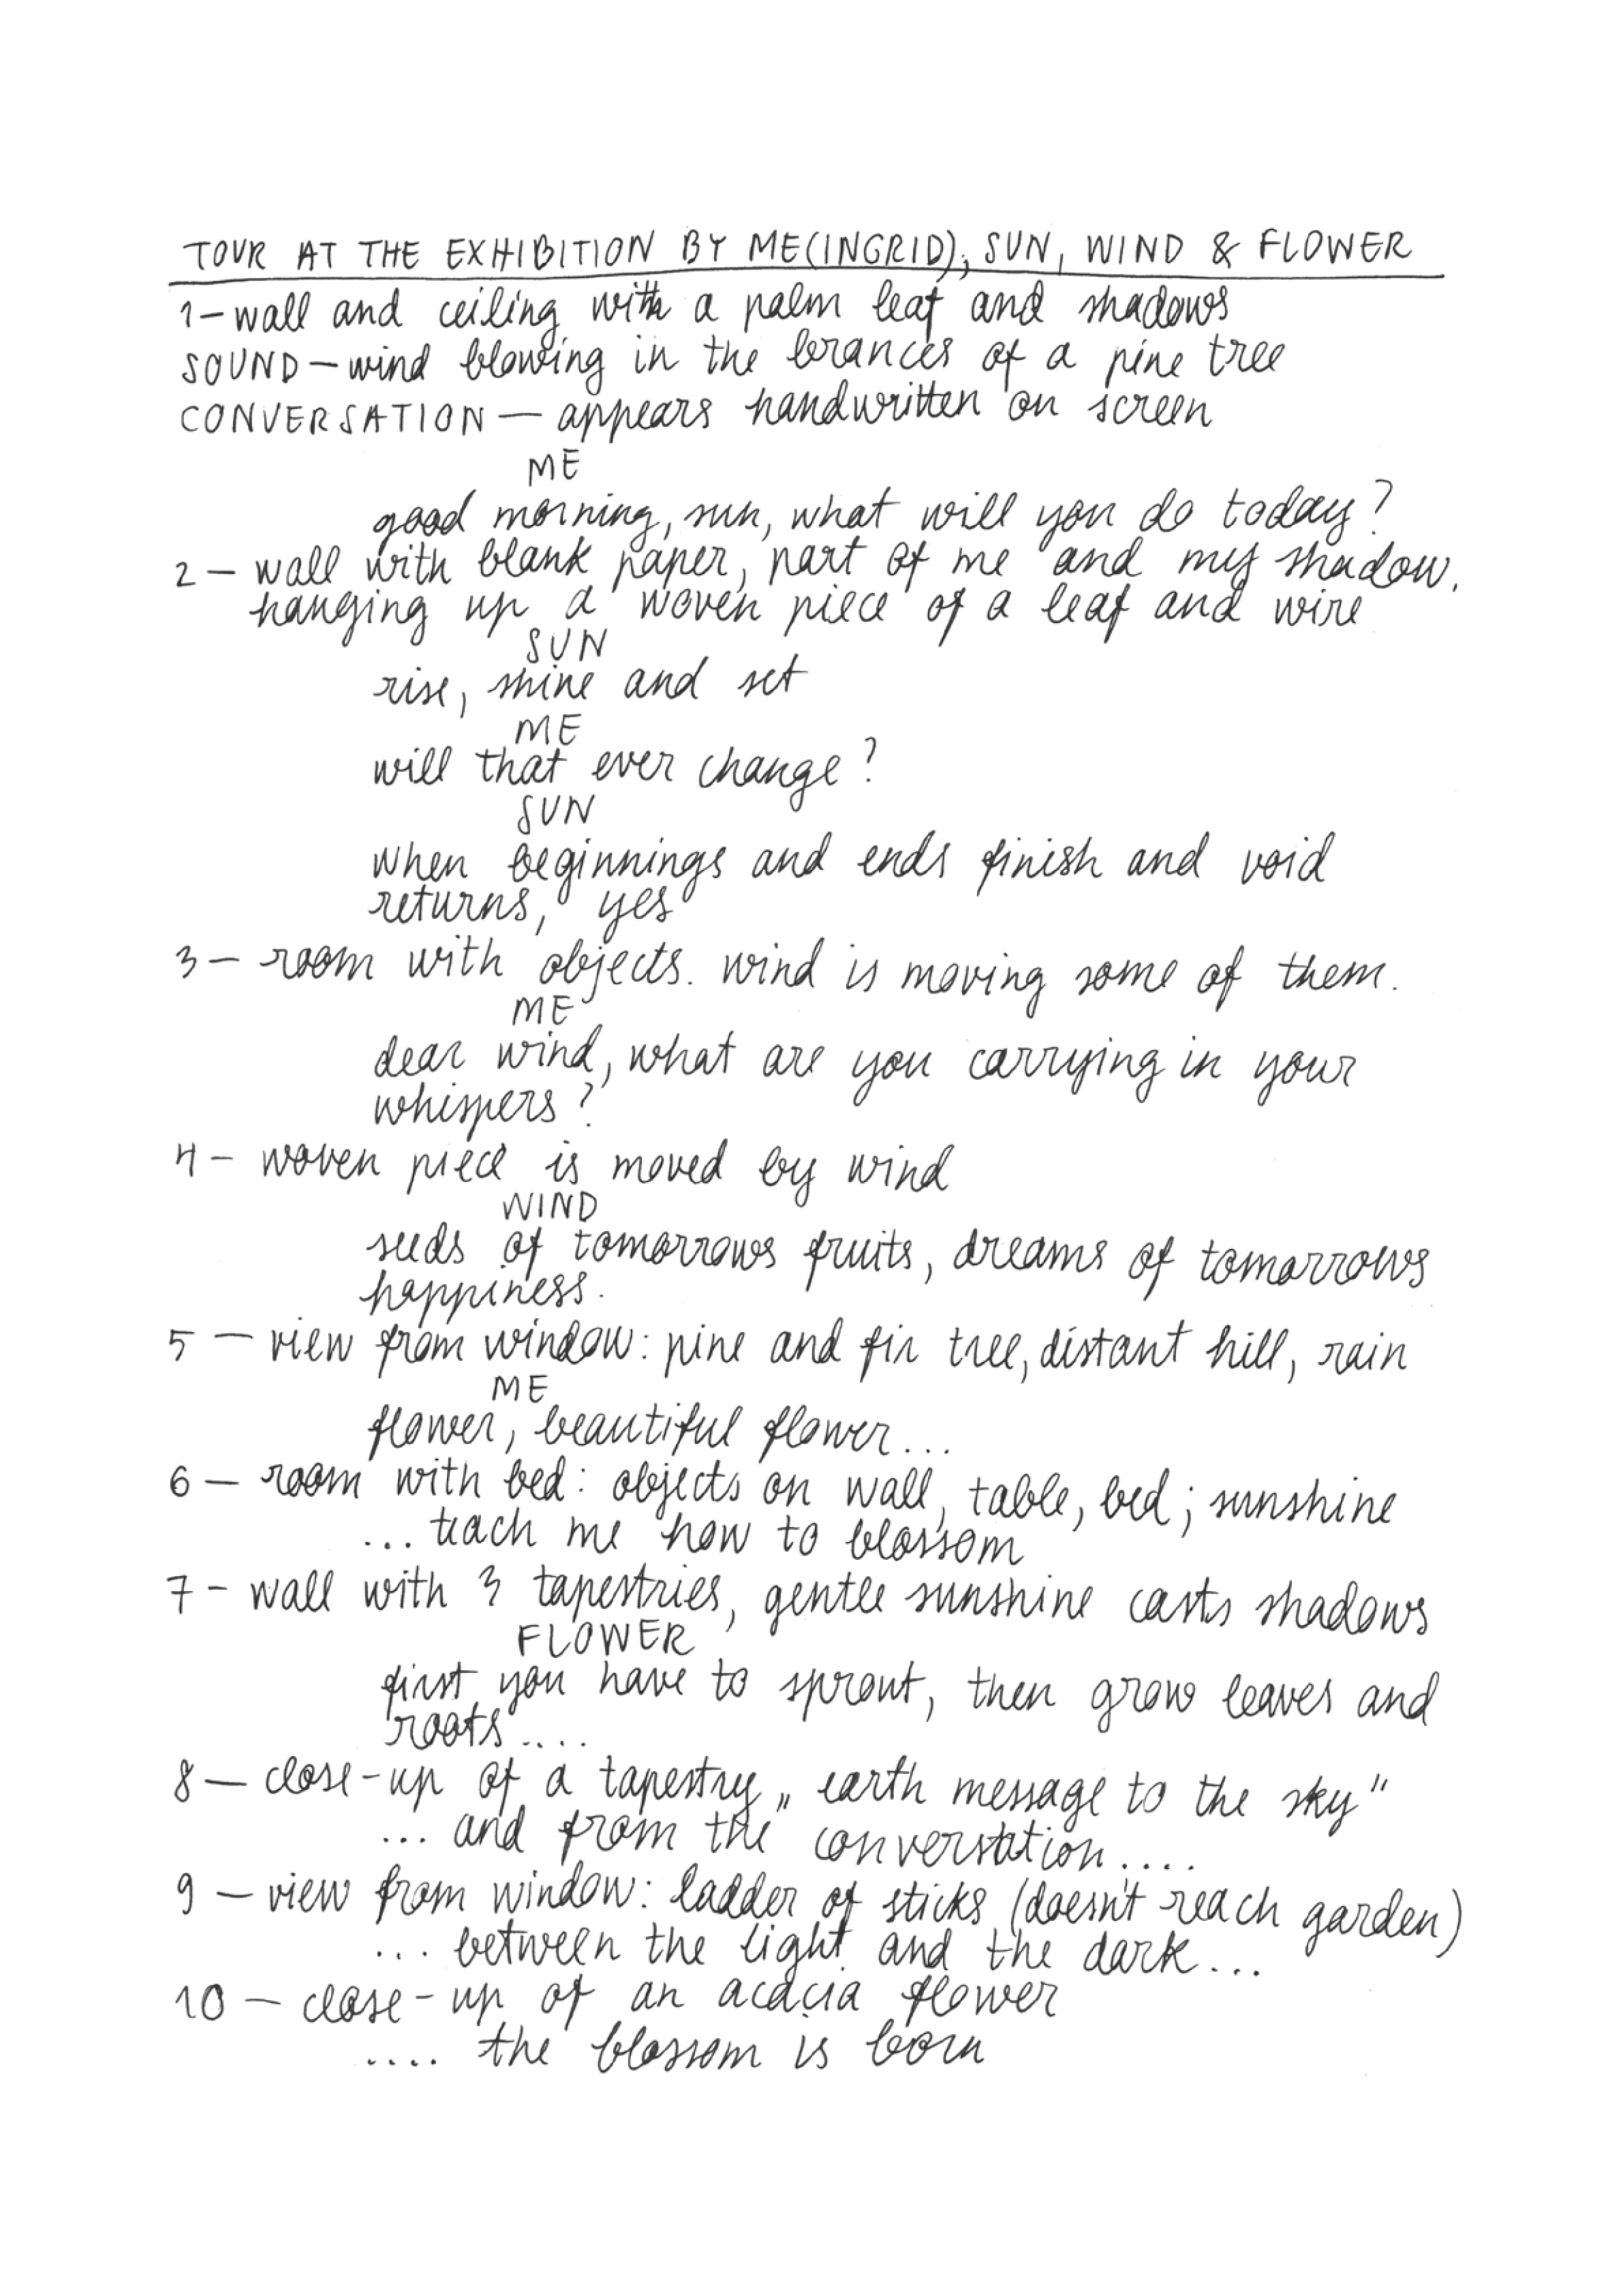 TOUR AT THE EXHIBITION BY ME(INGRID), SUN, WIND & FLOWER
1 – wall and ceiling with a palm leaf and shadows
SOUND – wind blowing in the brances of a pine tree
CONVERSATION – appears handwritten on screen
ME
good morning, sun, what will you do today?
2 – wall with blank paper, part of me and my shadow.
hanging up a woven piece of a leaf and wire
SUN
rise, shine and set
ME
will that ever change?
SUN
when beginnings and ends finish and void
returns, yes
3 – room with objects. wind is moving some of them.
ME
dear wind, what are you carrying in your
whispers?
4 – woven piece is moved by wind
WIND
seeds of tomorrows fruits, dreams of tomorrows
happiness.
5 – view from window: pine and fir tree, distant hill, rain
ME
flower, beautiful flower...
6 – room with bed: objects on wall, table, bed; sunshine
... teach me how to blossom
7 – wall with 3 tapestries, gentle sunshine casts shadows
FLOWER
first you have to sprout, then grow leaves and
roots....
8 – close-up of a tapestry „earth message to the sky"
... and from the converstation....
9 – view from window: ladder of sticks (doesn't reach garden)
... between the light and the dark...
10 – close-up of an acacia flower
.... the blossom is born